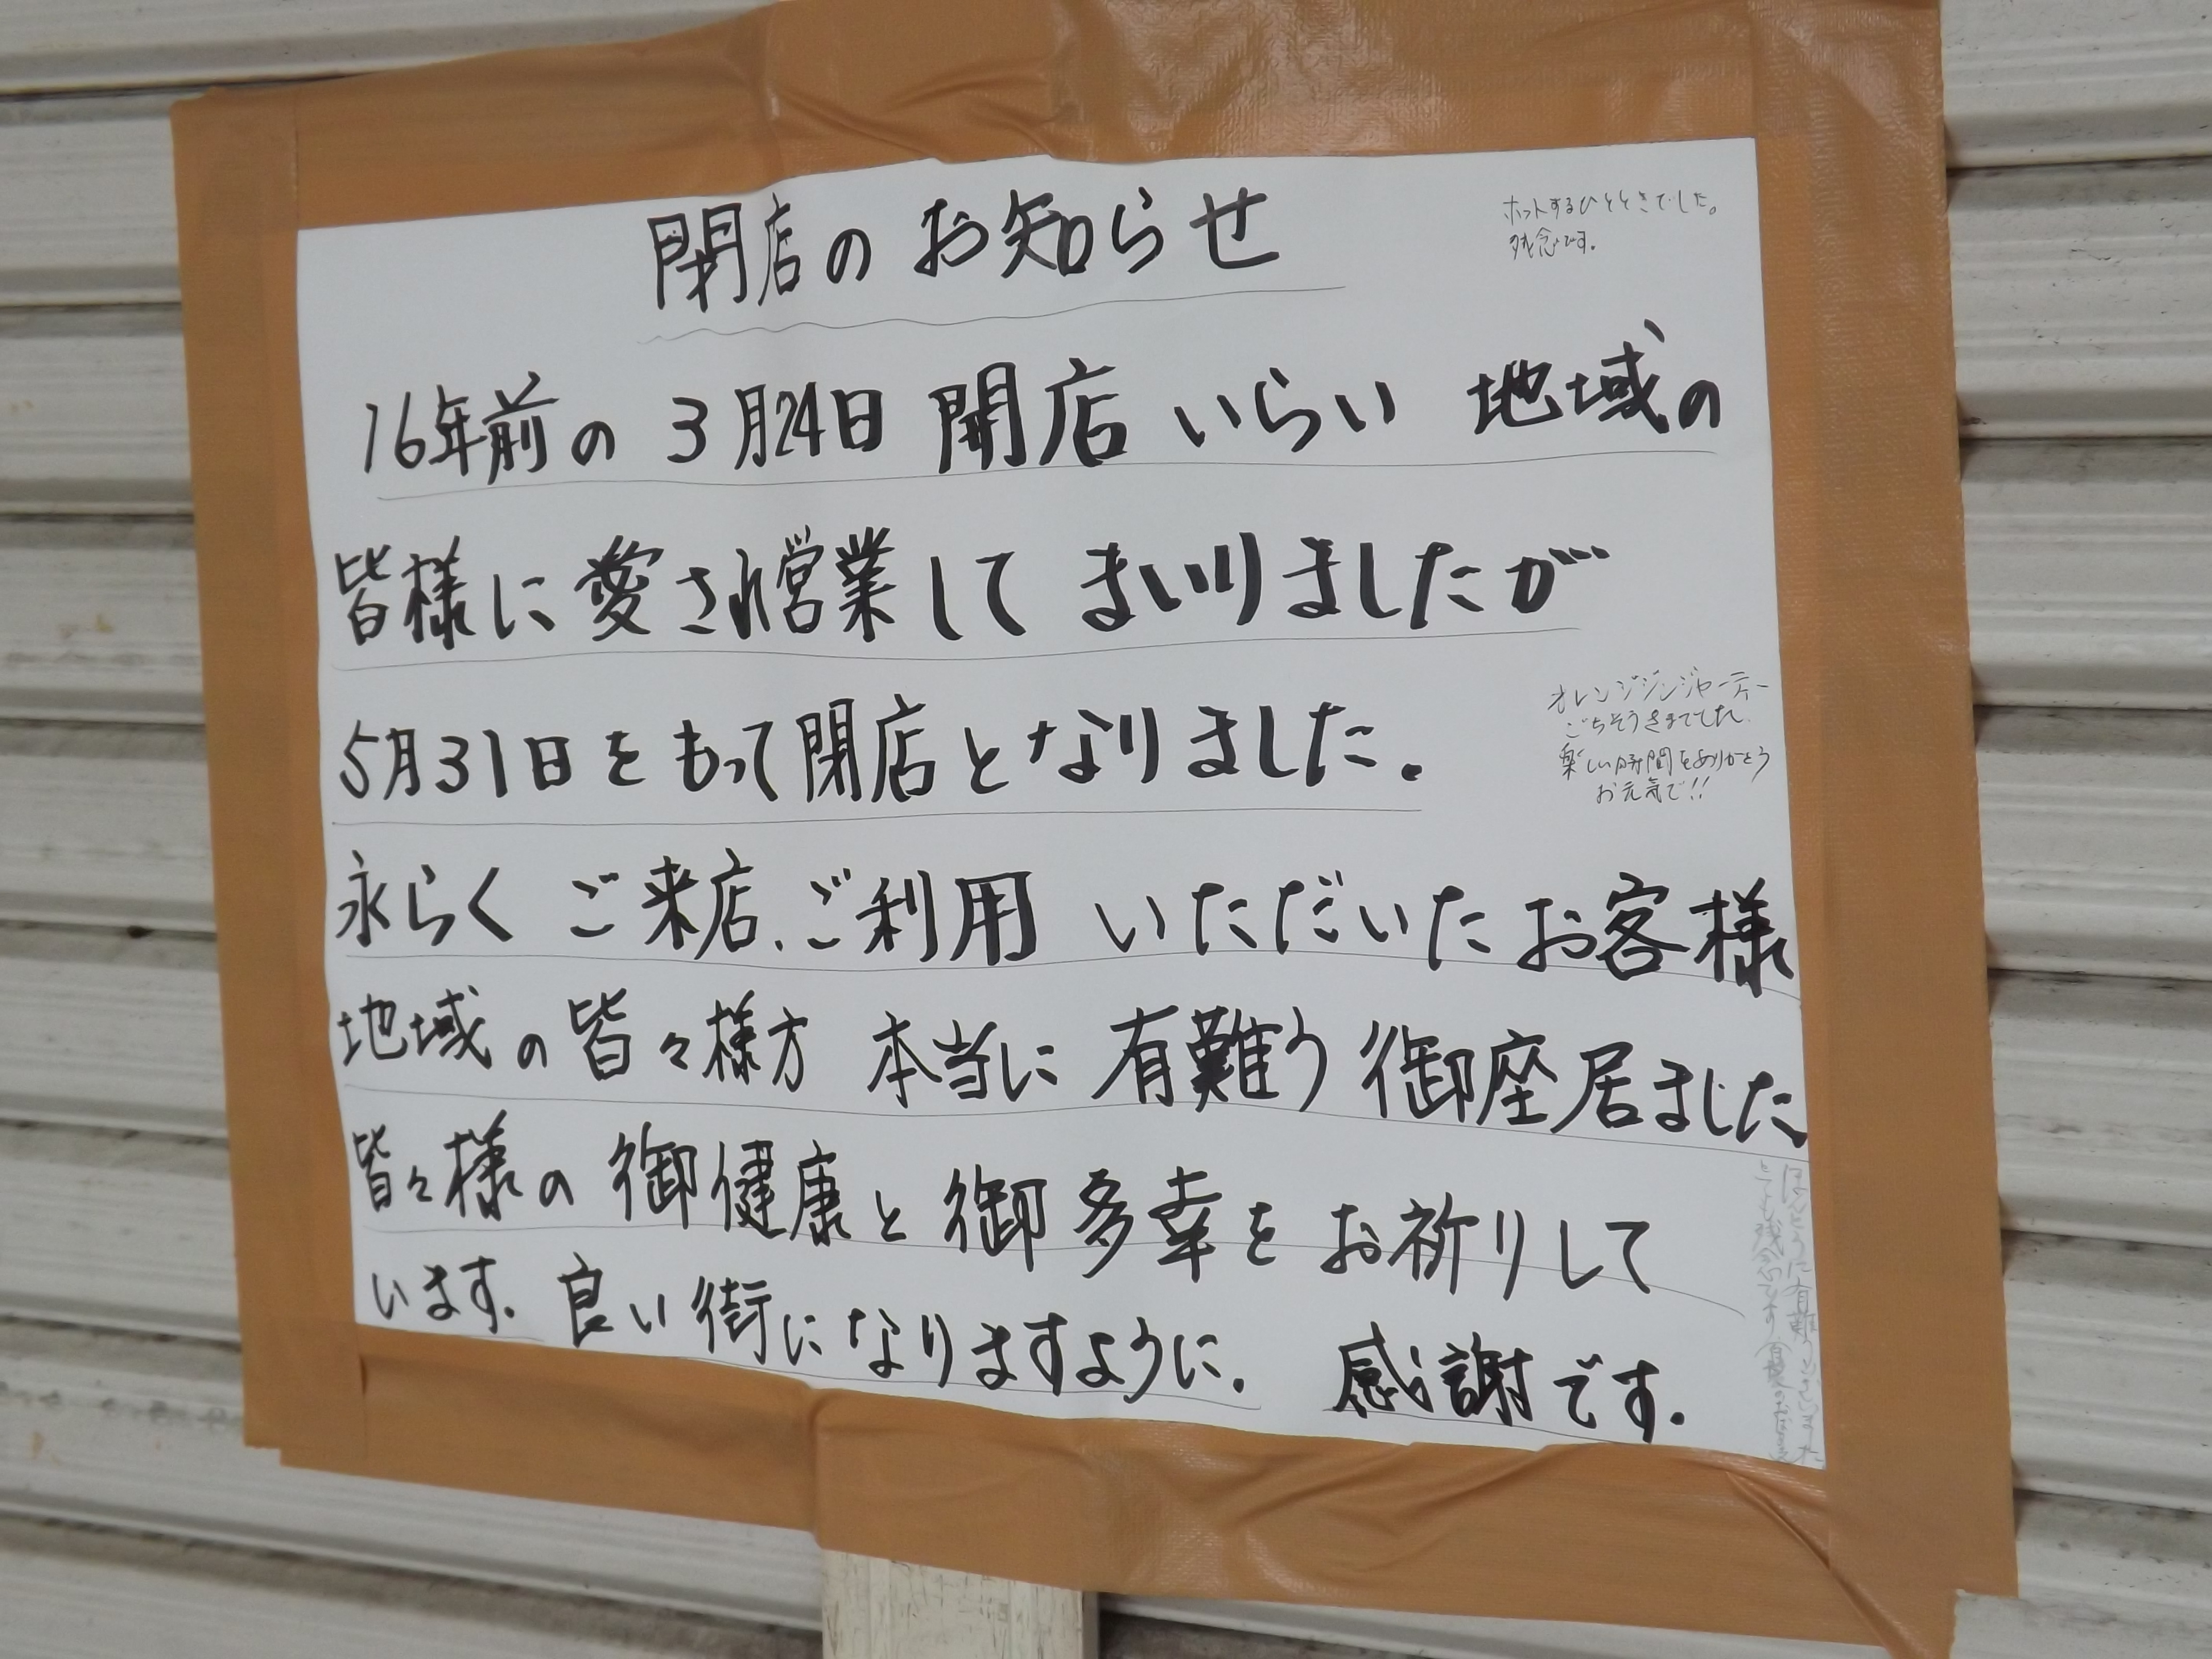 閉店のお知らせ
ホットするひとときでした。
残念です。
16年前の3月24日開店いらい地域の
皆様に愛され営業してまいりましたが
5月31日をもって閉店となりました。
オレンジジンジャーティー
ごちそうさまでした
楽しい時間をありがとう
お元気で!!
永らくご来店、ご利用いただいたお客様
地域の皆々様方本当に有難う御座居ました
皆々様の御健康と御多幸をお祈りして
います。良い街になりますように。感謝です。
ほんとうに有難うございました
とても残念です